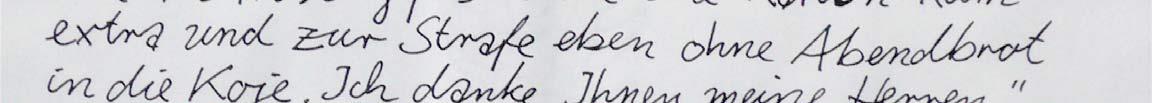 extra und zur Strafe eben ohne Abendbrot
in die Koje. Ich danke Ihnen meine Herren"